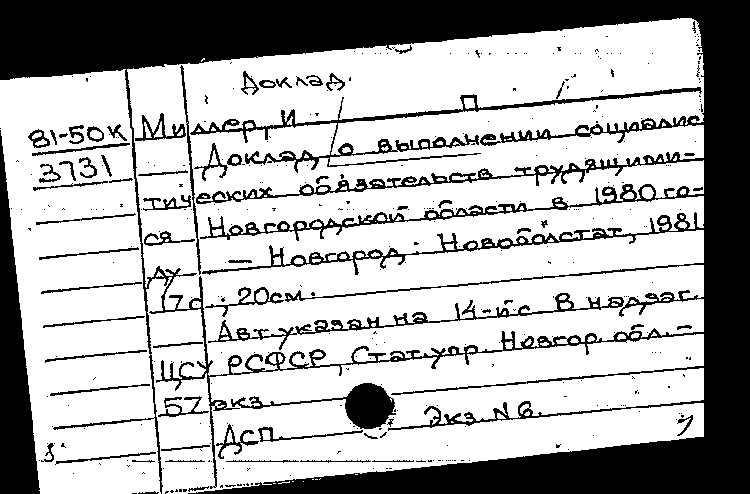 Доклад.
П
81-50К Миллер, И
3731 Доклад о выполнении социалис
тических обязательств трудящими-
ся Новгородской области в 1980 го-
ду — Новгород: Новоблстат, 1981
17с.; 20см.
Авт. указан на 14-й с. В надзаг.
ЦСУ РСФСР, Стат.упр. Новгор. обл.-
57 экз.
ДСП. Экз. N 6.